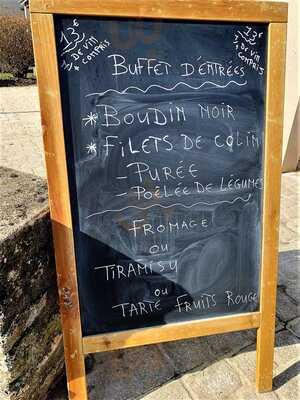 13€
¼ DE VIN
COMPRIS
13€
¼ DE VIN
COMPRIS
BUFFET D'ENTRÉES
* BOUDIN NOIR
* FILETS DE COLIN
- PURÉE
- POÊLÉE DE LÉGUMES
FROMAGE
OU
TIRAMISU
OU
TARTE FRUITS ROUGE